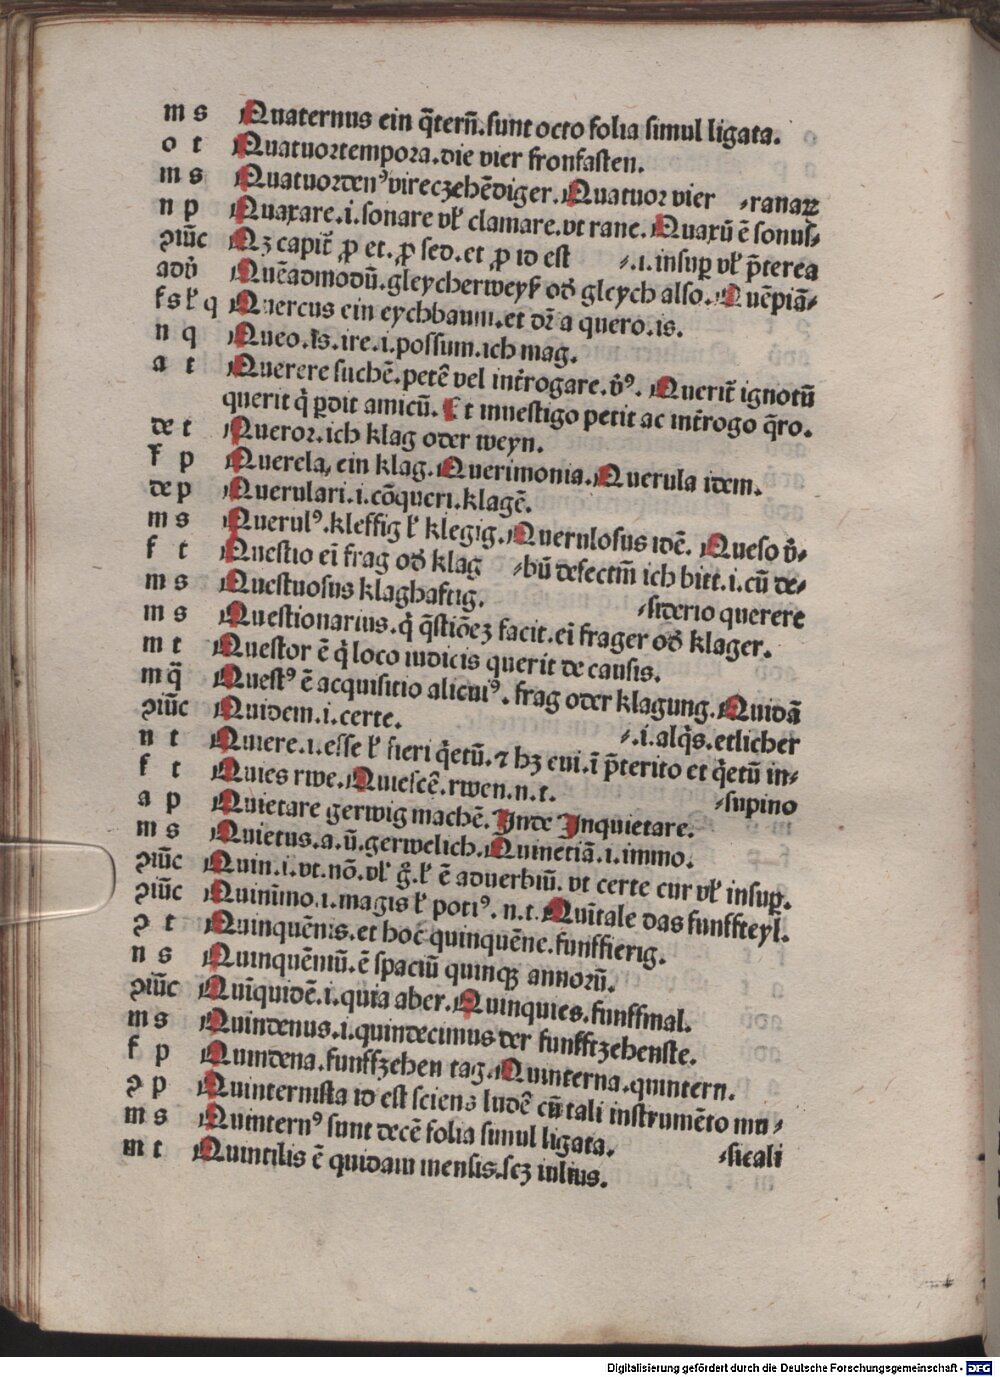 m s Quaternus ein q̄tern̄.sunt octo folia simul ligata.
o t Quatuortempora.die vier fronfasten.
m s Quatuorden⁹ vireczehēdiger.Quatuor vier ⸗ranaꝝ
n p Quaxare.i.sonare vł clamare.vt rane. Quaxū ē sonus⸗
ꝯiūc Qꝫ capit̄ ꝓ et.ꝓ sed.et ꝓ id est ⸗.i.insuꝑ vł p̄terea
adv̄ Quēadmodū.gleycherweyß od̄ gleych also.Quēpiā⸗
f s ł q Quercus ein eychbaum.et dr̄ a quero.is.
n q Queo.is.ire.i.possum.ich mag.
a t Querere suchē.petē vel int̄rogare.v̄⁹. Querit̄ ignotū
querit q̄ ꝑdit amicū. Et inuestigo petit ac int̄rogo q̄ro.
de t Queror.ich klag oder weyn.
f p Querela, ein klag.Querimonia.Querula idem.
de p Querulari.i.cōqueri.klagē.
m s Querul⁹.kleffig ł klegig.Querulosus idē. Queso v̄⸗
f t Questio eī frag od̄ klag ⸗bū defectiū ich bitt.i.cū de⸗
m s Questuosus klaghaftig. ⸗siderio querere
m s Questionarius.q̄ q̄stiōeꝫ facit.eī frager od̄ klager.
m t Questor ē q̄ loco iudicis querit de causis.
m q̄ Quest⁹ ē acquisitio alicui⁹. frag oder klagung.Quidā
ꝯiūc Quidem.i.certe. ⸗.i.alq̄s.etlicher
n t Quiere.i.esse ł fieri q̄etū.⁊ hꝫ eui.ī p̄terito et q̄etū in⸗
f t Quies rwe.Quiescē.rwen.n.t. ⸗supino
a p Quietare gerwig machē. Inde Inquietare.
m s Quietus.a.ū.gerwelich.Quinetiā.i.immo.
ꝯiūc Quin.i.vt.nō.vł g̊.ł ē aduerbiū. vt certe cur vł insuꝑ.
ꝯiūc Quinīmo.i.magis ł poti⁹. n.t.Quītale das funffteyl.
ꝯ t Quinquēnis.et hoc quinquēne.funffierig.
n s Quinquēniū.ē spaciū quinqꝫ annorū.
ꝯiūc Quīquidē.i.quia aber.Quinquies.funffmal.
m s Quindenus.i.quindecimus der funfftzehenste.
f p Quindena.funffzehen tag.Quinterna.quintern.
ꝯ p Quinternista id est sciens ludē cū tali instrumēto mu⸗
m s Quintern⁹ sunt decē folia simul ligata. ⸗sicali
m t Quintilis ē quidam mensis.scꝫ iulius.
Digitalisierung gefördert durch die Deutsche Forschungsgemeinschaft - DFG